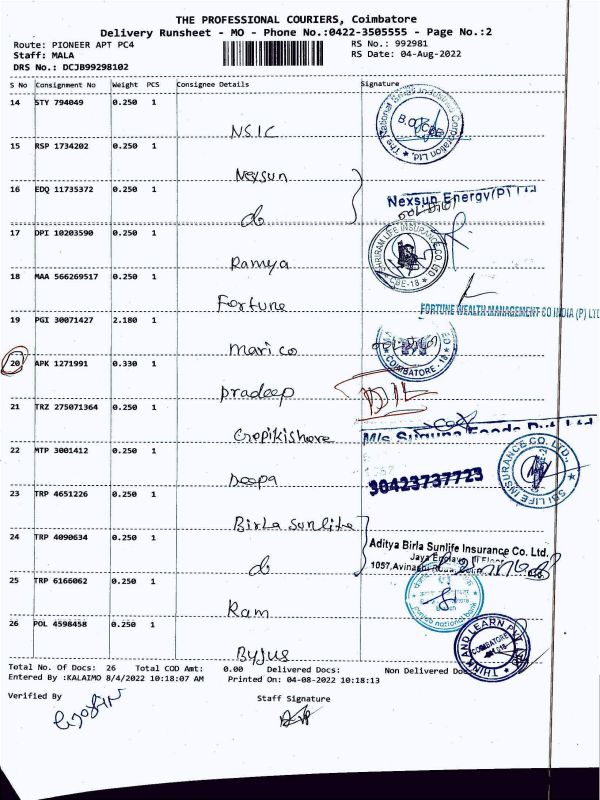 THE PROFESSIONAL COURIERS, Coimbatore
Delivery Runsheet - MO - Phone No.:0422-3505555 - Page No.:2
Route: PIONEER APT PC4
RS No.: 992981
Staff: MALA
RS Date: 04-Aug-2022
DRS No.: DCJB99298102
S No Consignment No Weight PCS Consignee Details Signature
14 STY 794049 0.250 1
NSIC
The National Small Industries Corporation Ltd.
15 RSP 1734202 0.250 1
Nexsun
16 EDQ 11735372 0.250 1
Nexsun Energy(P) Ltd
do
17 DPI 10203590 0.250 1
Ramya
SHRIRAM LIFE INSURANCE CO LTD
CBE-18
18 MAA 566269517 0.250 1
Fortune
FORTUNE WEALTH MANAGEMENT CO INDIA (P) LTD
19 PGI 30071427 2.180 1
Marico
COIMBATORE - 18
20 APK 1271991 0.330 1
pradeep
21 TRZ 275071364 0.250 1
Gropikishore
M/s Suguna Foods Pvt Ltd
22 MTP 3001412 0.250 1
Deepa
30423737723
SBI LIFE INSURANCE CO. LTD.,
23 TRP 4651226 0.250 1
Birla Sunlife
24 TRP 4090634 0.250 1
Aditya Birla Sunlife Insurance Co. Ltd.
Jaya Enclave, II Floor
1057, Avinashi Road,
do
25 TRP 6166062 0.250 1
Ram
punjab national bank
26 POL 4598458 0.250 1
Byjus
THINK AND LEARN PVT
COIMBATORE
Total No. Of Docs: 26 Total COD Amt: 0.00 Delivered Docs: Non Delivered Docs
Entered By :KALAIMO 8/4/2022 10:18:07 AM Printed On: 04-08-2022 10:18:13
Verified By
Staff Signature